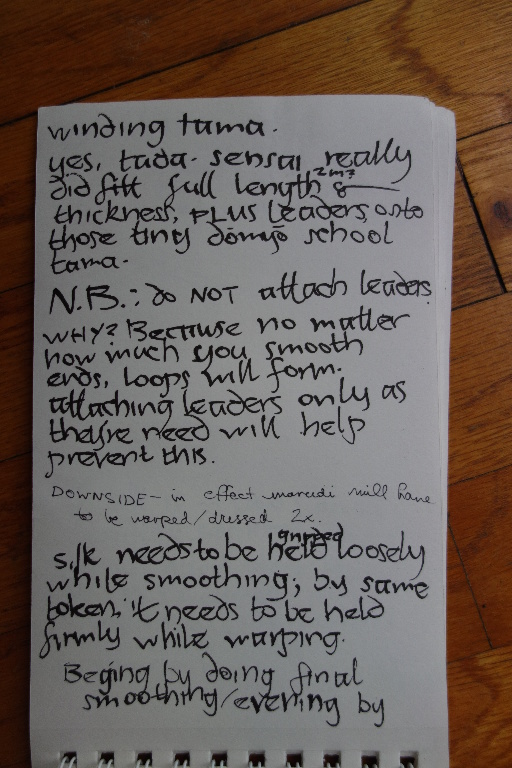 winding tama.
yes, tada. sensai really
did fitt full length 2m? &
thickness, PLUS leaders, onto
those tiny dōmyō school
tama.
N.B.: do NOT attach leaders.
WHY? Because no matter
how much you smooth
ends, loops will form.
attaching leaders only as
they're need will help
prevent this.
DOWNSIDE - in effect marudi will have
to be warped/dressed 2x.
silk needs to be held gripped loosely
while smoothing; by same
token, it needs to be held
firmly while warping.
Beging by doing final
smoothing/evening by